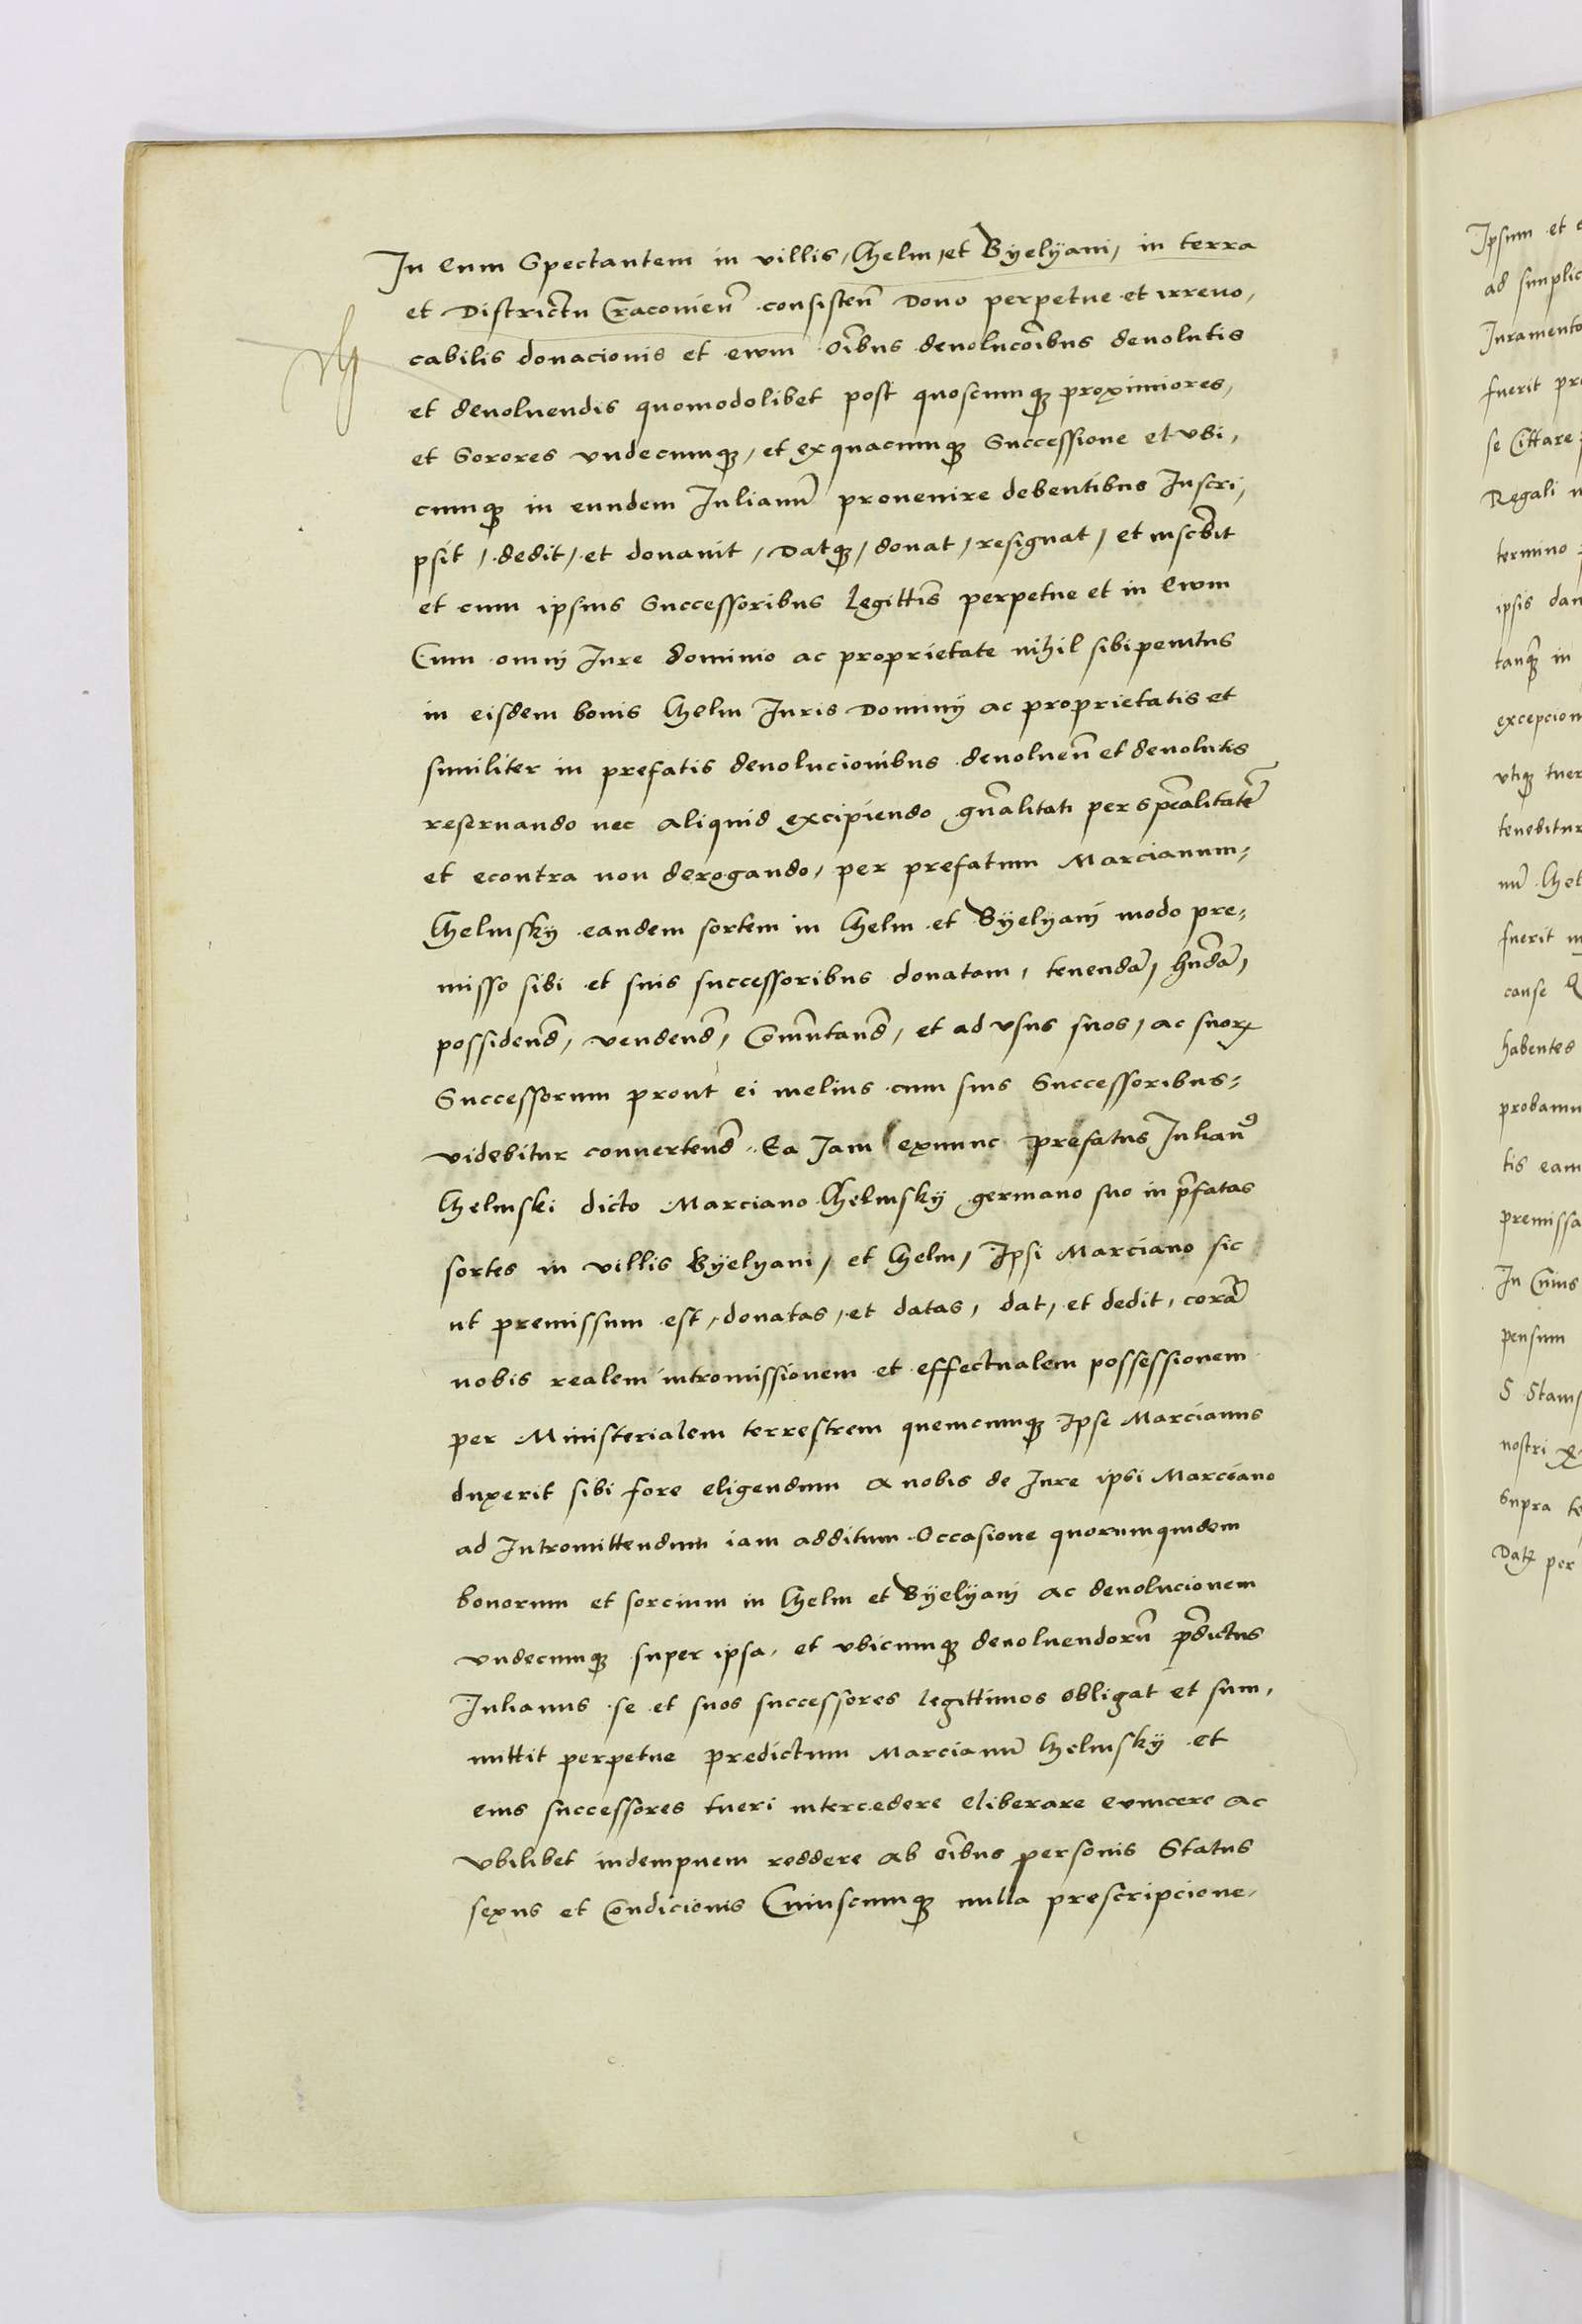 In Eum Spectantem in villis, Chelm, et Byelyani, in terra
et Districtu Cracovien̄ consisten̄ Dono perpetue et irrevo,
cabilis donacionis et ewm oībus devolucoībus devolutis
et devoluendis quomodolibet post quoscumqꝫ proximiores,
et Sorores vndecumqꝫ, et ex quacumqꝫ Successione et vbi,
cumqꝫ in eundem Julianū provenire debentibus Inscri,
psit, dedit, et donavit, Datqꝫ, donat, resignat, et inscbīt
et cum ipsius Successoribus Legittīs perpetue et in Ewm
Cum omnj Jure dominio ac proprietate nihil sibi penitus
in eisdem bonis Chelm Juris Dominij ac proprietatis et
similiter in prefatis devolucionibus devoluen̄ et devolutis
reservando nec aliquid excipiendo gn̄alitati per sp̄ealitatē
et econtra non derogando, per prefatum Marcianum-
Chelmskij eandem sortem in Chelm et Byelyanj modo pre-
misso sibi et suis successoribus donatam, tenendā, hn̄dā,
possidend̄, vendend̄, Com̄utand̄, et ad vsus suos, ac suorꝝ
Successorum prout ei melius cum suis Successoribus-
videbitur convertend̄. Ea Jam exnunc prefatus Julianꝰ
Chelmski dicto Marciano Chelmskij germano suo in p̄fatas
sortes in villis Byelyani, et Chelm, Ipsi Marciano sic
ut premissum est, donatas, et datas, dat, et dedit, corā
nobis realem intromissionem et effectualem possessionem
per Ministerialem terrestrem quemcumqꝫ Ipse Marcianus
duxerit sibi fore eligendum a nobis de Jure ipsi Marciano
ad Intromittendum iam additum Occasione quorumquidem
bonorum et sorcium in Chelm et Byelyanj ac devolucionem
vndecumqꝫ super ipsa, et vbicumqꝫ devoluendorū p̄dictus
Julianus se et suos successores legittimos obligat et sum,
mittit perpetue predictum Marcianū Chelmskij et
eius successores tueri intercedere eliberare evincere ac
vbilibet indempnem reddere ab oībus personis Status
sexus et Condicionis Cuiuscumqꝫ nulla prescripcione,
Ipsum et
ad simplic
Juramento
fuerit pr
se Cittare
Regali
termino
ipsis dan
tanqꝫ in
excepcion
vtiqꝫ tuer
tenebitur
nū Chel
fuerit
cause
habentes
probamu
tis eam
premissa
In Cuius
pensum
S Stanis
nostri
Supra te
Datꝝ per